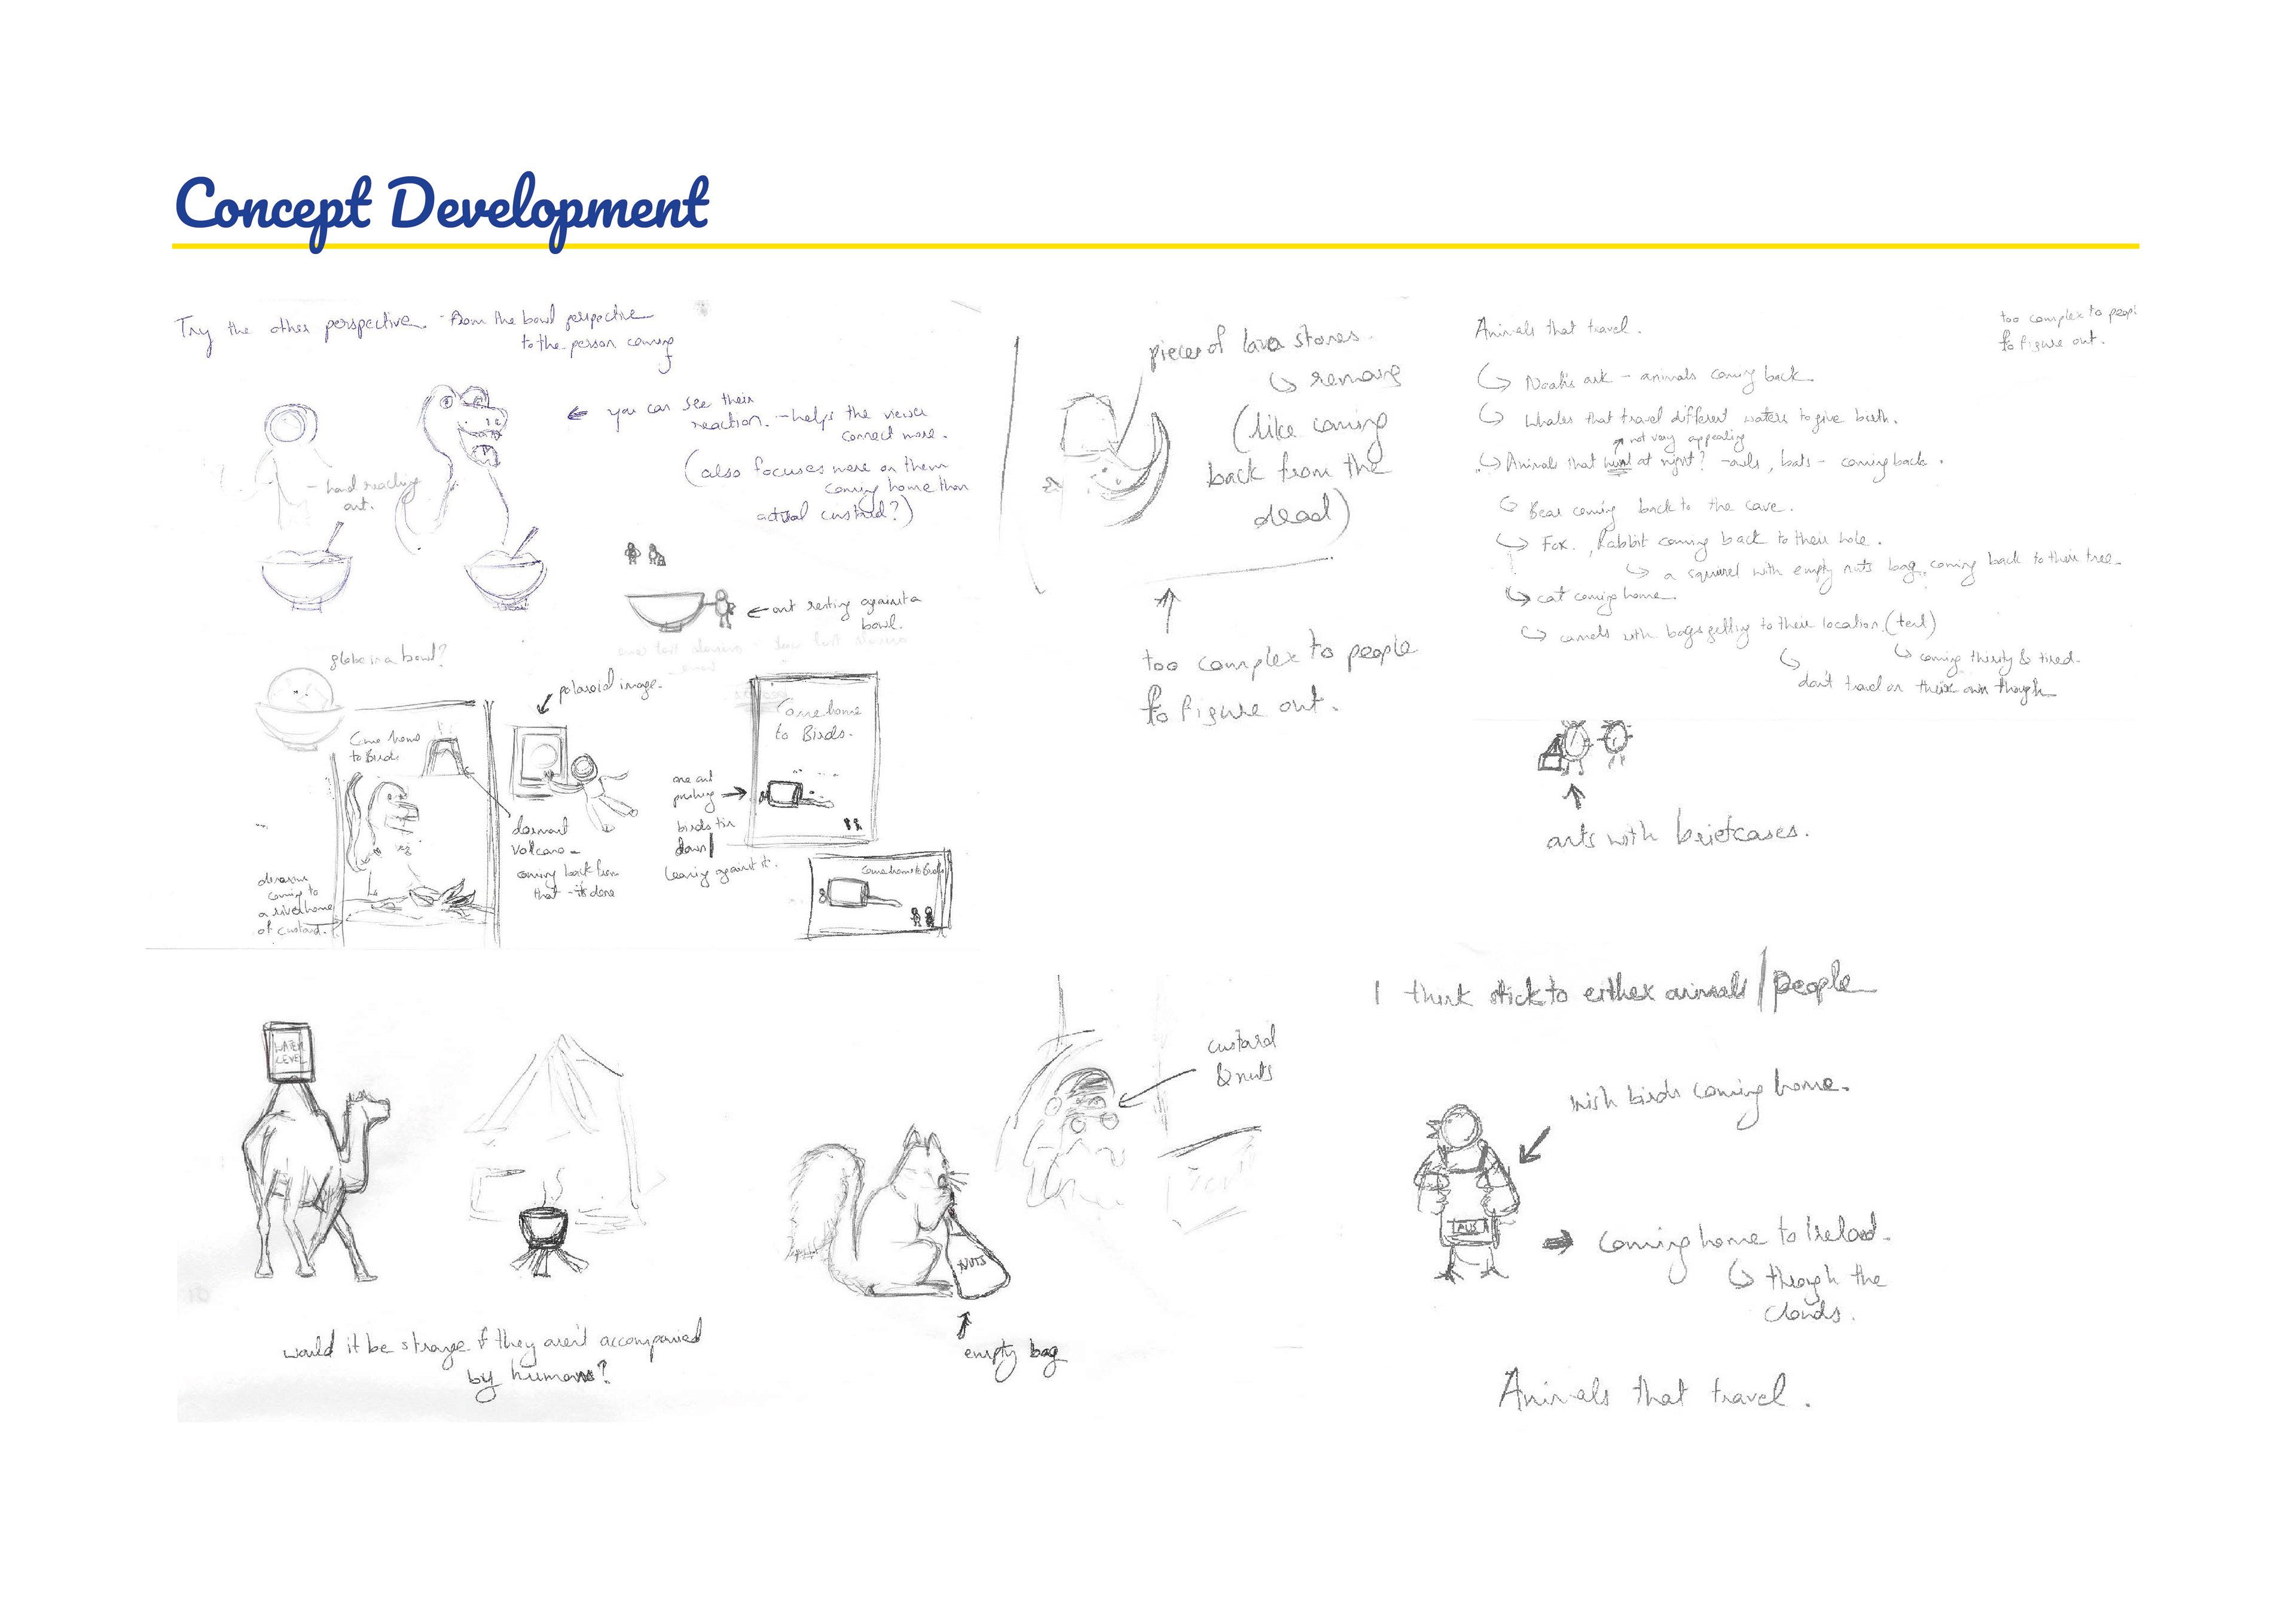 Concept Development
Try the other perspective. - From the bowl perspective
to the person coming
← you can see their
reaction. - helps the viewer
connect more.
(also focuses more on them
coming home than
actual custard?)
- hand reaching
out.
← ant resting against a
bowl.
globe in a bowl?
polaroid image.
Come home
to Birds
dormant
volcano -
coming back from
that - it's done
coming to
a river home
of custard.
Come home
to Birds.
one ant
pushing
birds tin
down
leaning against it.
Come home to Birds
pieces of lava stones.
↳ remove
(like coming
back from the
dead)
too complex to people
to figure out.
Animals that travel.
too complex to peopl
to figure out.
↳ Noah's ark - animals coming back.
↳ Whales that travel different waters to give birth.
not very appealing
↳ Animals that hunt at night? - owls, bats - coming back.
↳ Bear coming back to the cave.
↳ Fox, Rabbit coming back to their hole.
↳ a squirrel with empty nuts bag, coming back to their tree.
↳ cat coming home.
↳ camels with bags getting to their location. (tent)
↳ coming thirsty & tired.
↳ don't travel on their own though
ants with briefcases.
WATER
LEVEL
would it be strange if they aren't accompanied
by humans?
custard
& nuts
NUTS
empty bag
I think stick to either animals / people
Irish birds coming home.
AUS
→ coming home to Ireland.
↳ through the
clouds.
Animals that travel.